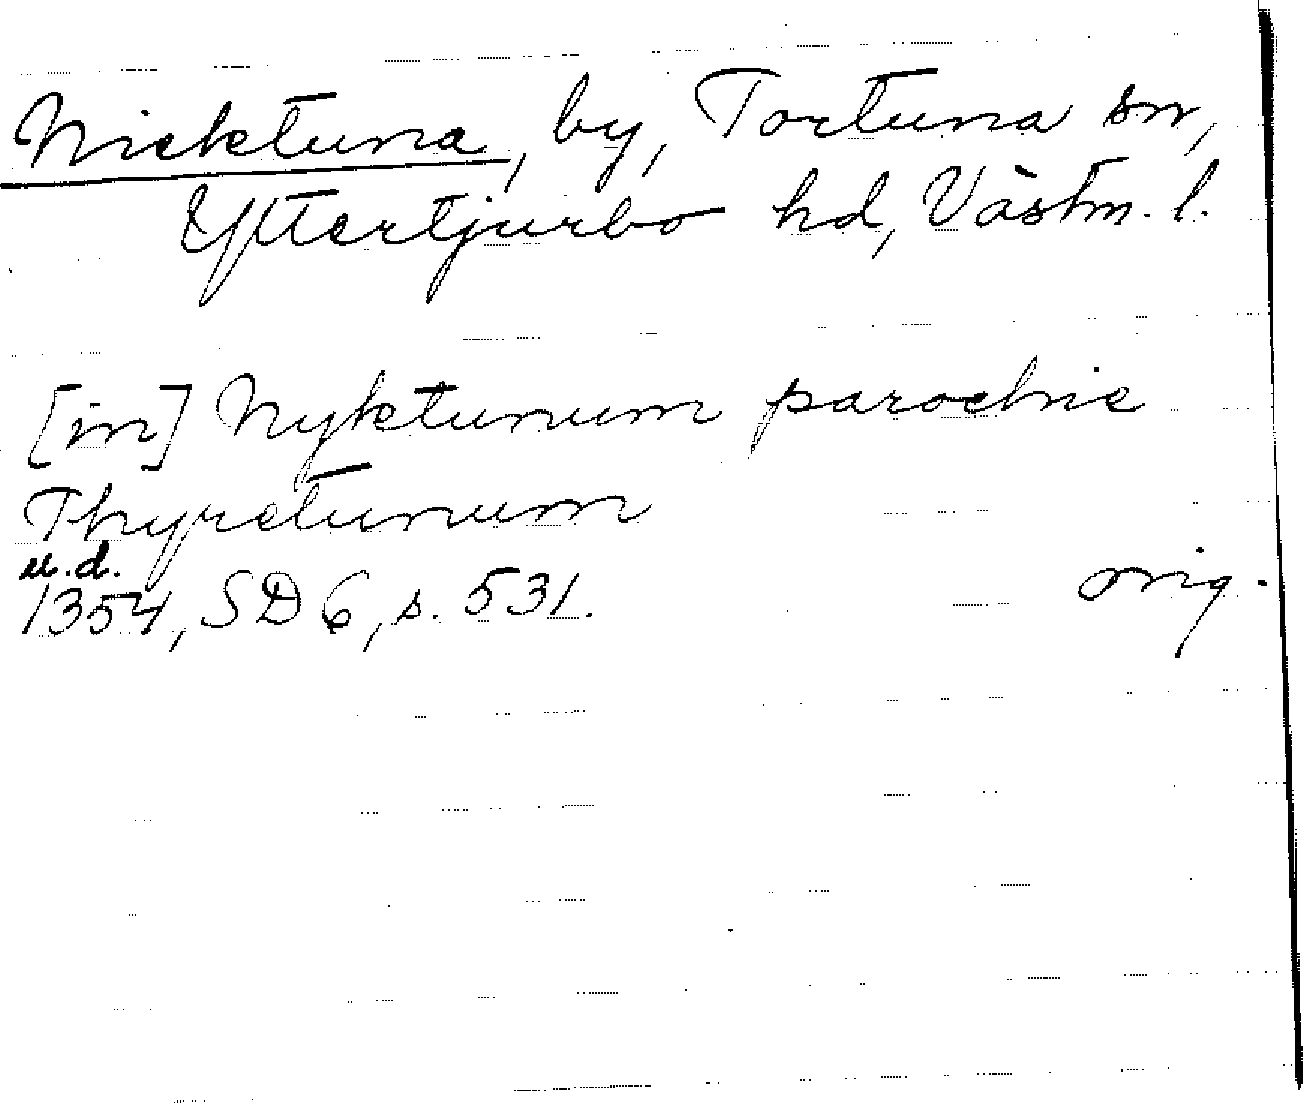 Nicktuna, by, Tortuna sn,
Yttertjurbo hd, Västm. l.
[in] Nyktunum parochie
Thyretunum
u.d.
1354, SD 6, s. 531. orig.